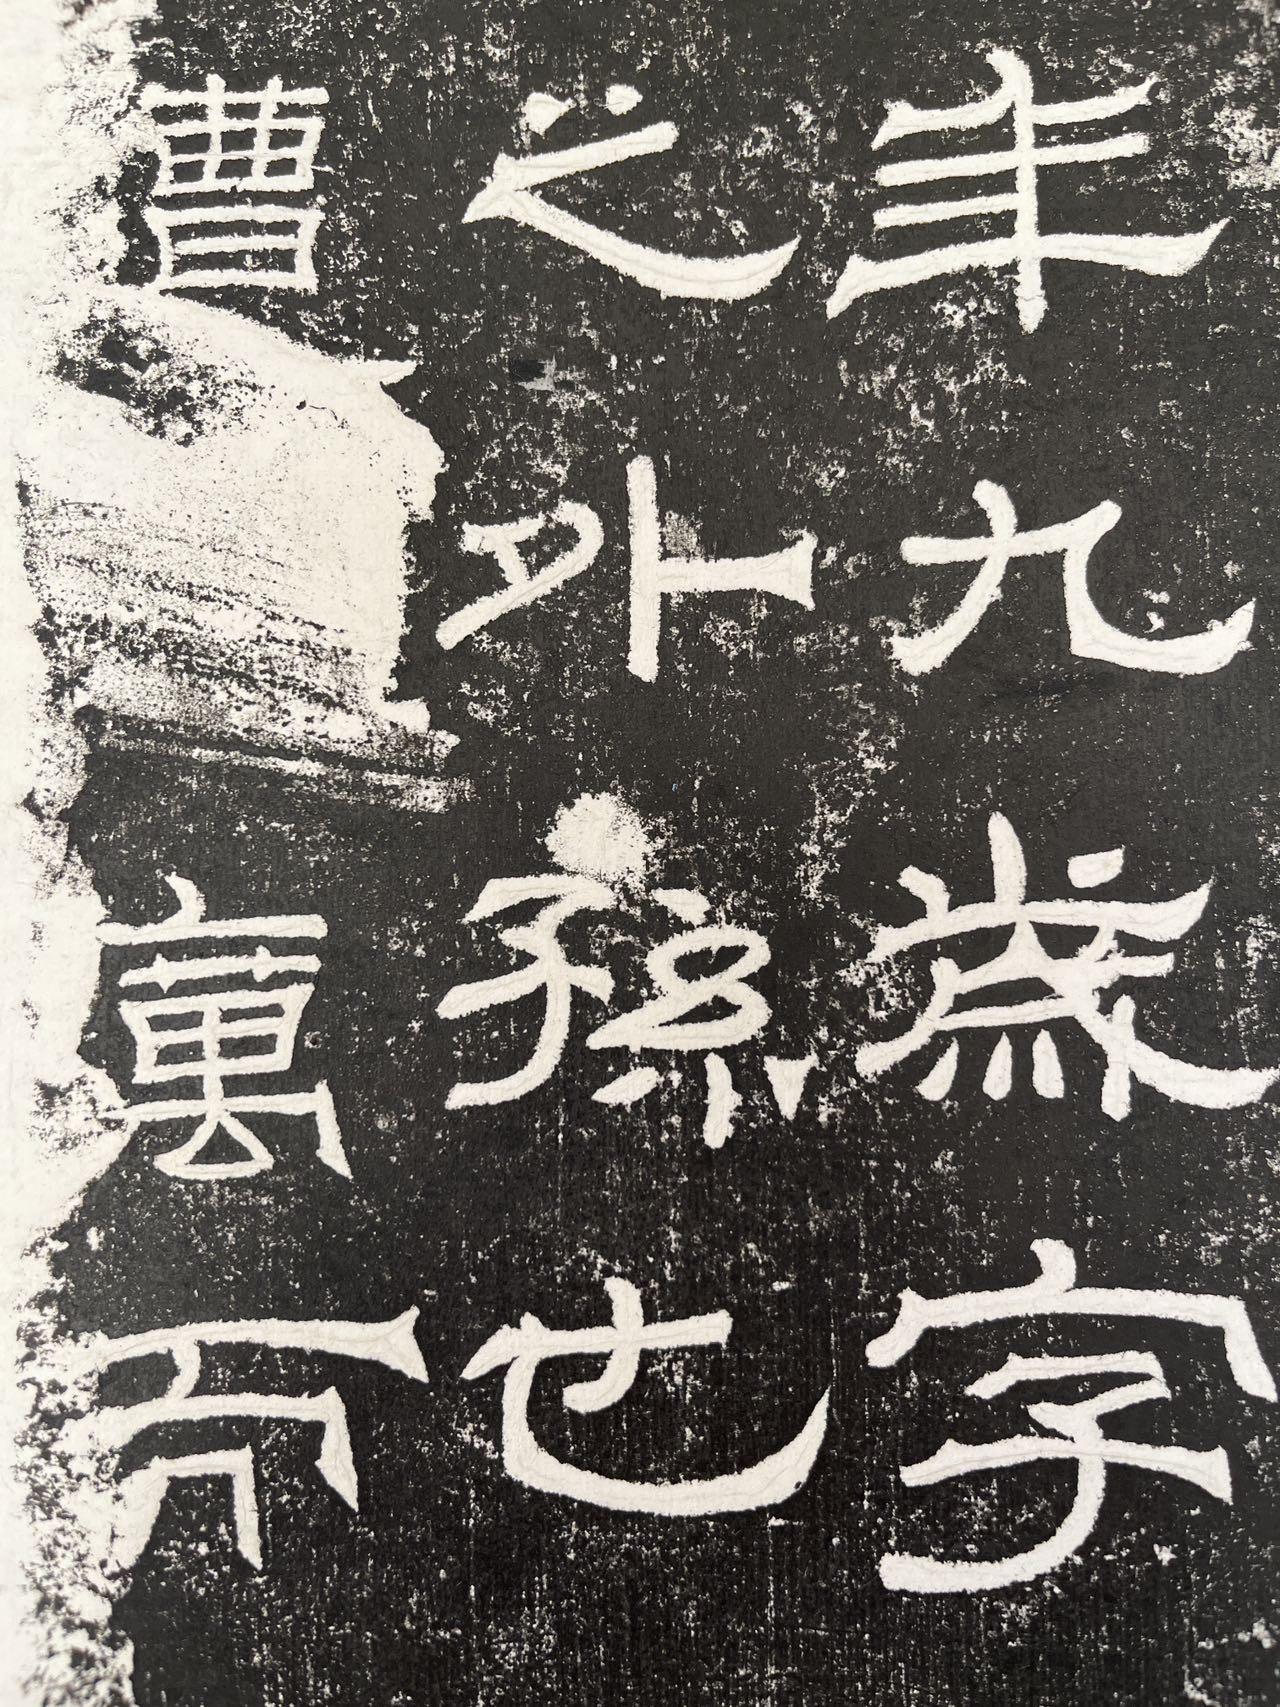 年九歲字
之外孫也
曹萬而